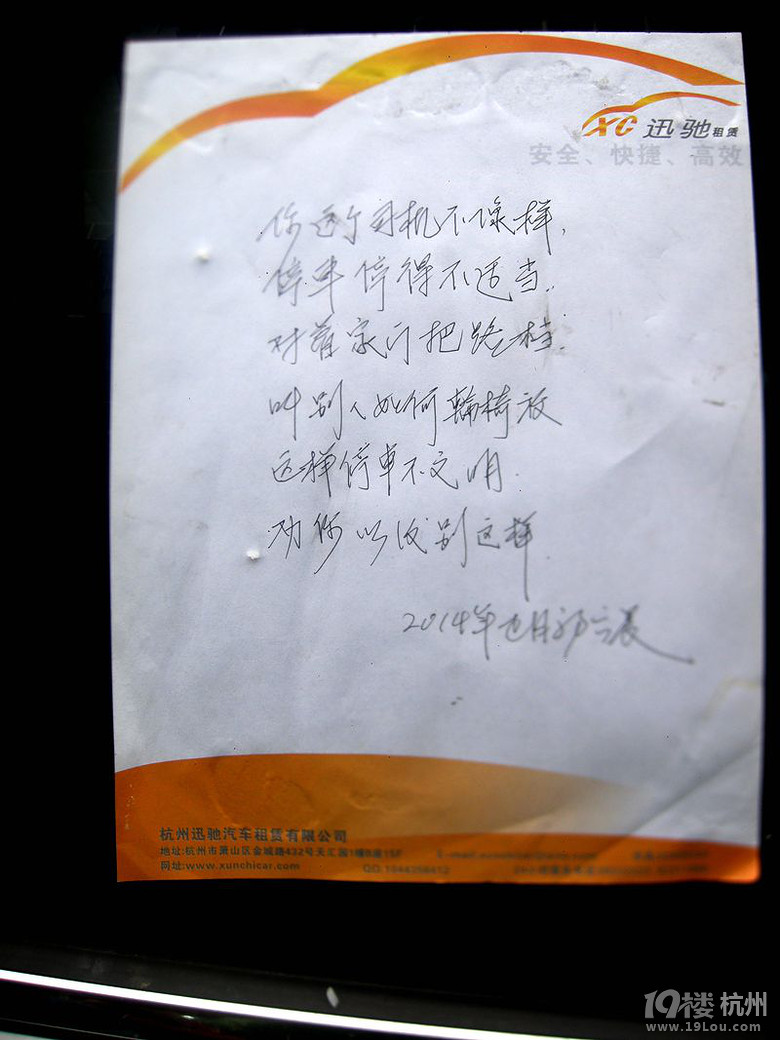 XC 迅驰租赁
安全、快捷、高效
你这个司机不像样,
停车停得不适当.
对着家门把路档.
叫别人如何轮椅放
这样停车不文明.
劝你以后别这样.
2014年
杭州迅驰汽车租赁有限公司
地址:杭州市萧山区金城路432号天汇园1幢B座15F
网址:www.xunchicar.com
19楼 杭州
www.19Lou.com